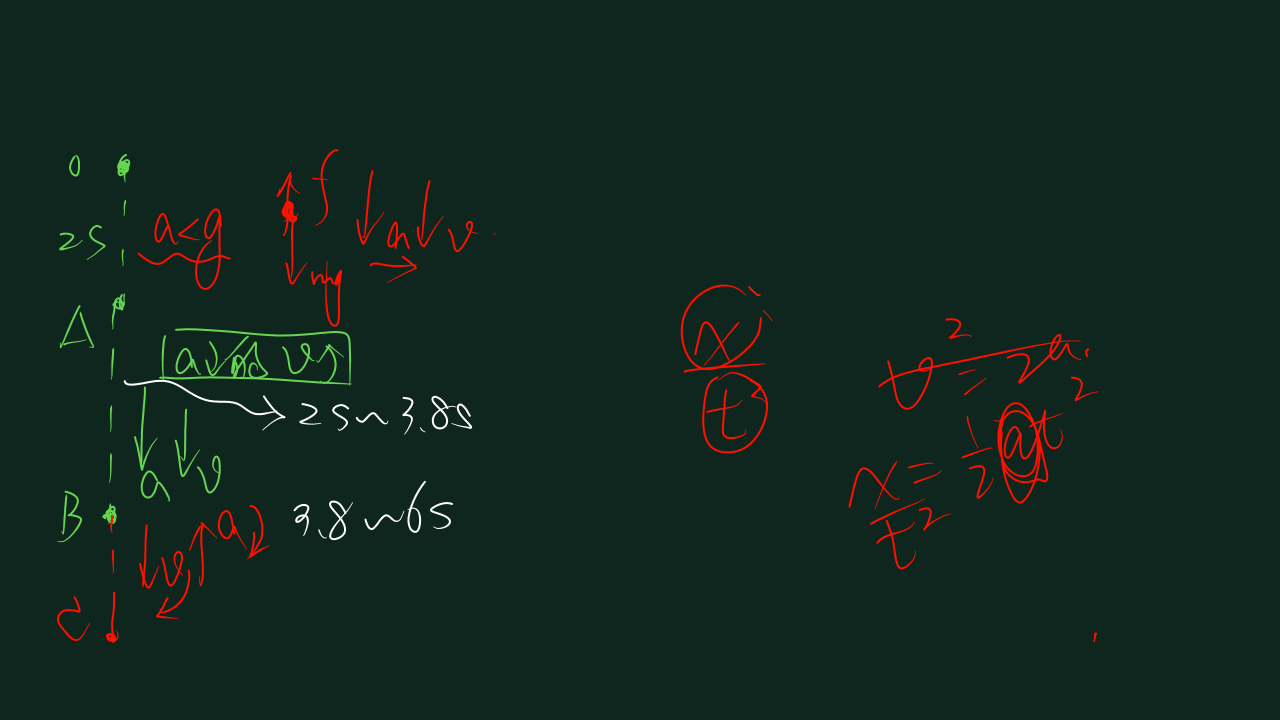 0
2S
a<g
f
a
v
mg
A
v
2S~3.8S
a
v
B
v
a
3.8~6S
C
x
t²
v²=2a
x=½at²
t²